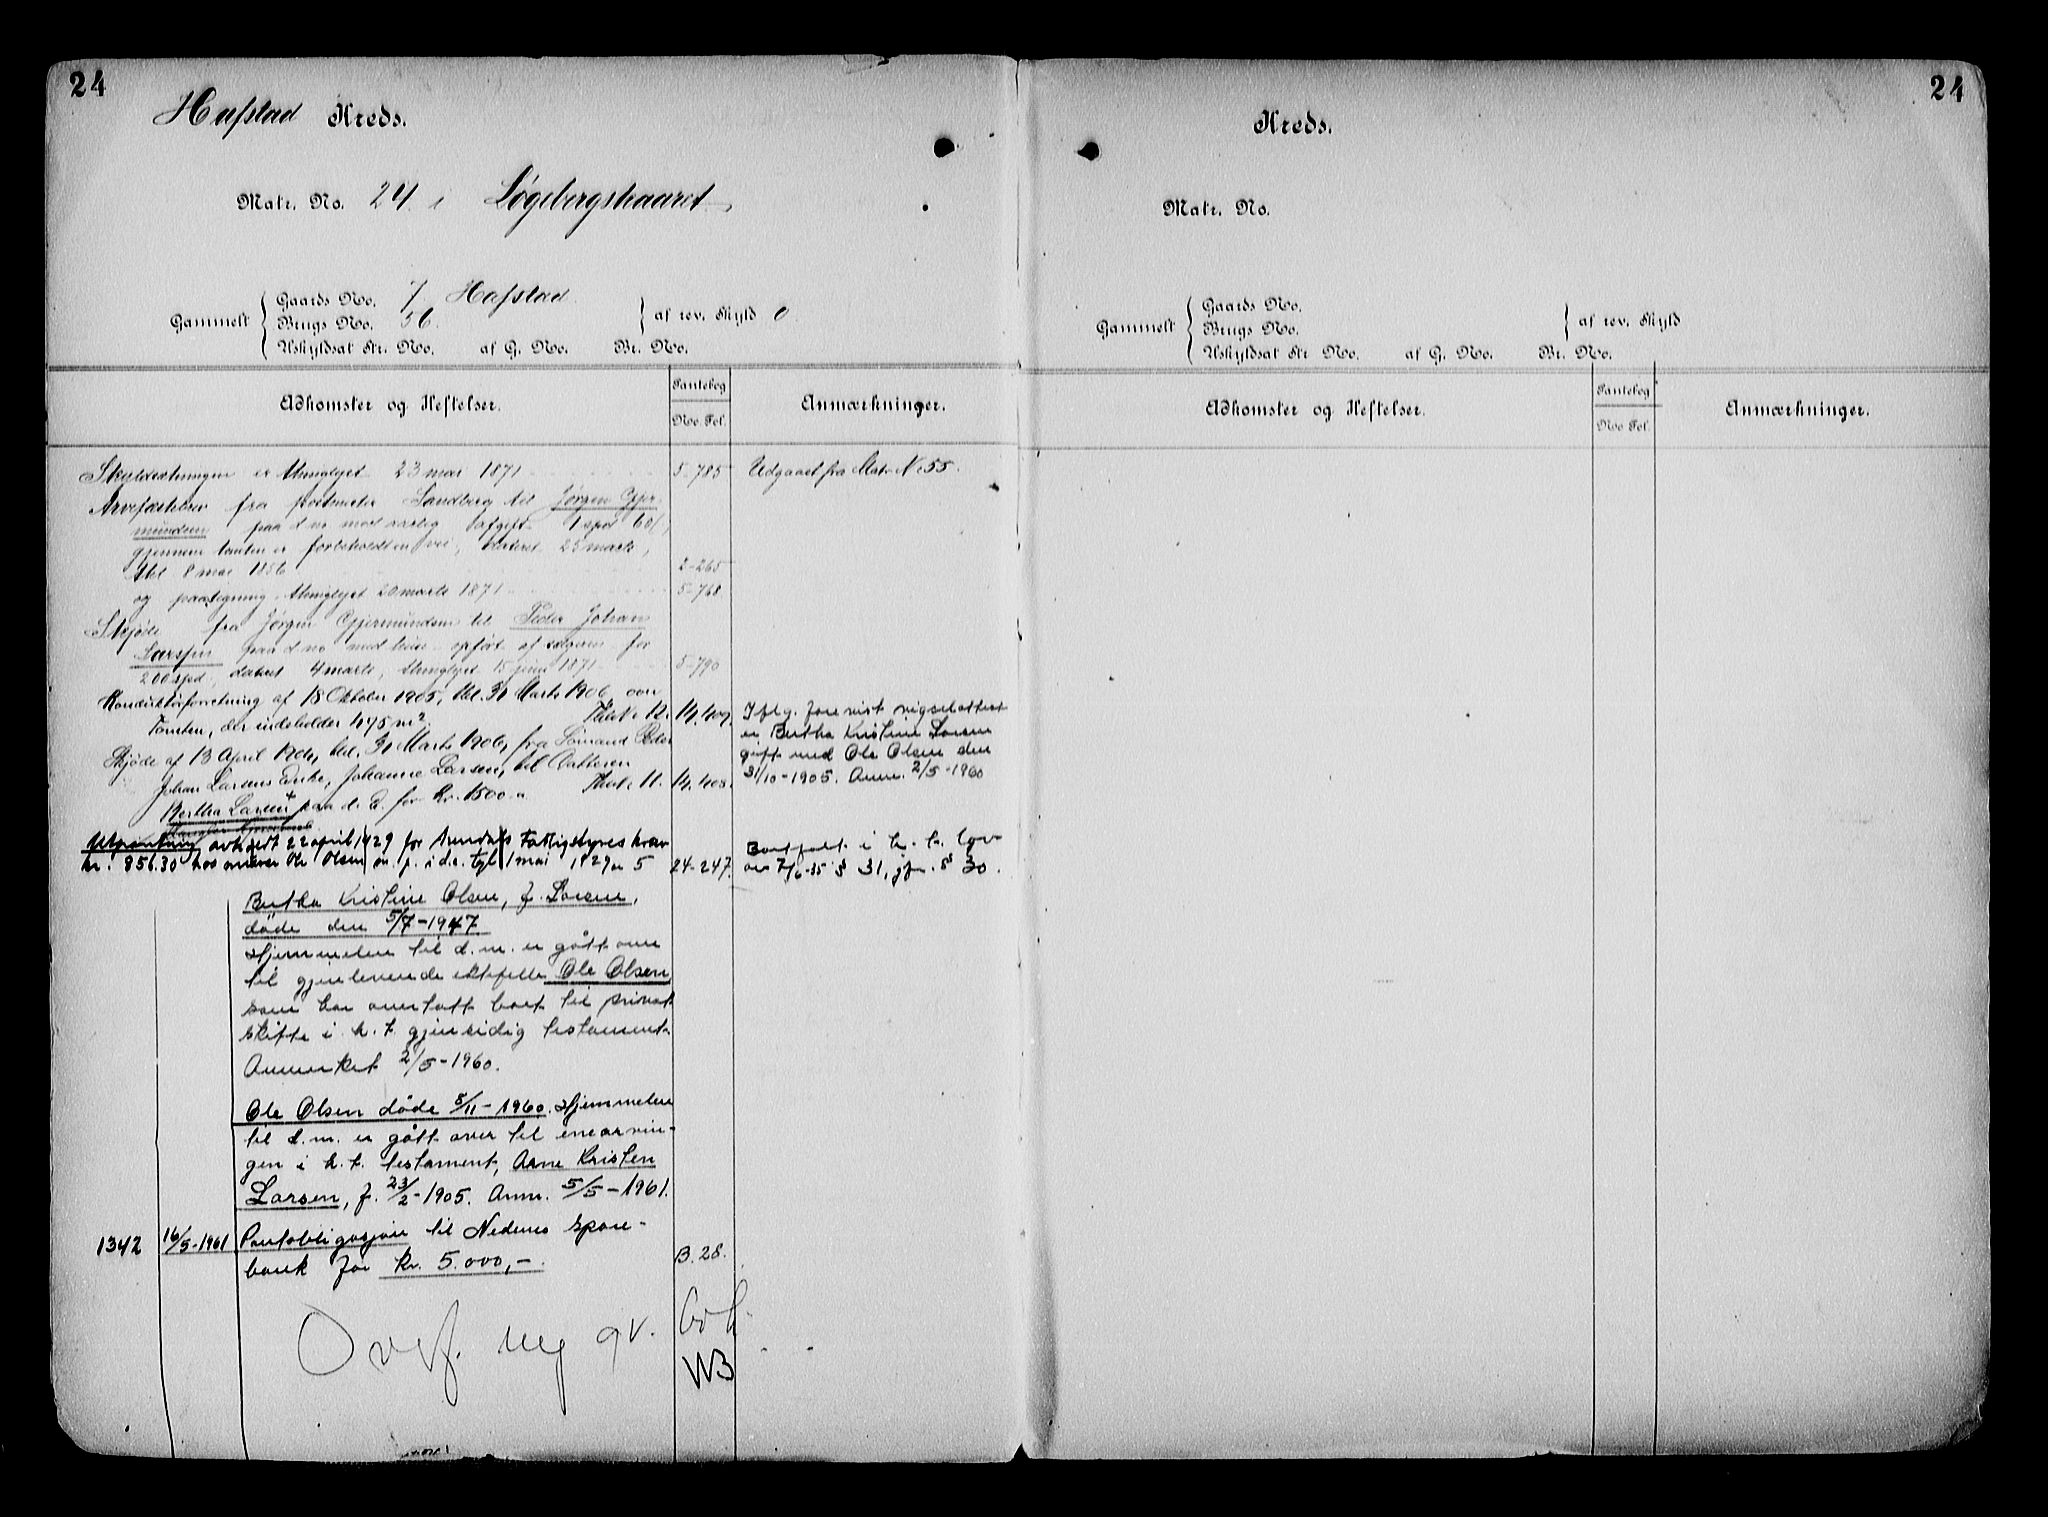 24
Hafstad Kreds.
Matr. No. 24 i Løgebergskaaret
Gammelt
Gaards No. 7 Hafstad
Brugs No. 56.
Uskyldsat Str. No. af G. No. Br. No.
af rev. Skyld 0
Adkomster og Heftelser.
Pantebog
No. Fol.
Anmærkninger.
Skylddelningen er thinglyst 23 mai 1871 5-785 Udgaaet fra Matr No 55.
Arvefæstebrev fra postmester Sandberg til Jørgen Gjer-
mundsen paa d no mod aarlig afgift 1 spd 60 /,
gjennem tomten er forbeholdt en vei, dateret 25 marts,
thl. 8 mai 1856 2-265
og paategning thinglyst 20 marts 1871 5-768
Skjøde fra Jørgen Gjermundsen til Peder Johan
Larssen paa d no med huus opført af sælgeren for
200 spd, dateret 4 marts, thinglyst 15 juni 1871 5-790
Konduktörforretning af 18 Oktober 1905, thl. 31 Marts 1906, over
Tomten, der indeholder 475 m². 14, 407.
Skjøde af 13 April 1901, thl. 31 Marts 1906, fra Peder
Johan Larsens Enke, Johanne Larsen, til Datteren
Bertha Larsen + paa d. E. for Kr. 1500.- 14, 408.
Iflg. forevist vigselattest
er Bertha Kristine Larsen
gift med Ole Olsen den
31/10-1905. Anm. 2/5-1960
Utpantning avholdt 22 april 1929 for Arendals Fattigstyres krav
kr. 856.30 hos eieren Ole Olsen m. p. i d.e. tgl 1 mai 1929 n 5 24-247.
Bortfalt i h. t. lov
av 7/6-35 § 31, jfr. § 30.
Bertha Kristine Olsen, f. Larsen,
døde den 5/7-1947.
Hjemmelen til d.m. er gått over
til gjenlevende ektefelle Ole Olsen
som har overtatt boet til privat
skifte i h. t. gjensidig testament.
Anmerket 2/5-1960.
Ole Olsen døde 5/11-1960. Hjemmelen
til d.m. er gått over til enearvin-
gen i h. t. testament, Arne Kristen
Larsen, f. 23/2-1905. Anm. 5/5-1961.
1342 16/5-1961 Pantobligasjon til Nedenes Spare-
bank for kr. 5.000,-. B. 28.
Overf. ny gv.
WB
24
Kreds.
Matr. No.
Gammelt
Gaards No.
Brugs No.
Uskyldsat Str No. af G. No. Br. No.
af rev. Skyld
Adkomster og Heftelser.
Pantebog
No Fol.
Anmærkninger.